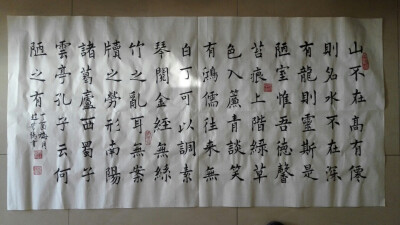 山不在高有僊
則名水不在深
有龍則靈斯是
陋室惟吾德馨
苔痕上階綠草
色入簾青談笑
有鴻儒往來無
白丁可以調素
琴閱金經無絲
竹之亂耳無案
牘之勞形南陽
諸葛廬西蜀子
雲亭孔子云何
陋之有
丁酉